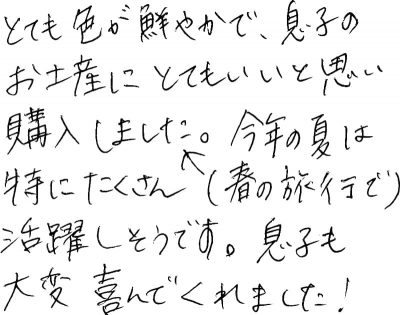 とても色が鮮やかで、息子の
お土産にとてもいいと思い
購入しました。今年の夏は
特にたくさん(春の旅行で)
活躍しそうです。息子も
大変喜んでくれました！